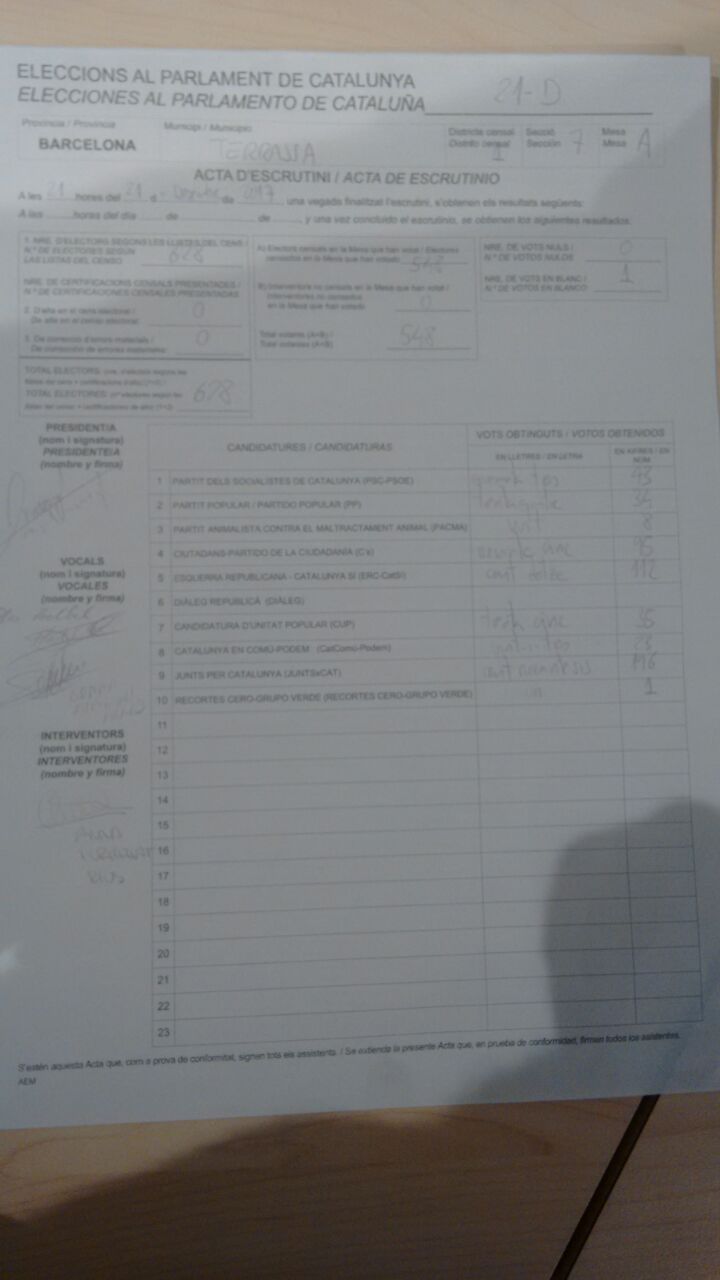 ELECCIONS AL PARLAMENT DE CATALUNYA
ELECCIONES AL PARLAMENTO DE CATALUÑA 21-D
Província / Provincia
BARCELONA
Municipi / Municipio
TERRASSA
Districte censal
Distrito censal
1
Secció
Sección
7
Mesa
Mesa
A
ACTA D'ESCRUTINI / ACTA DE ESCRUTINIO
A les 21 hores del 21 d de 2017, una vegada finalitzat l'escrutini, s'obtenen els resultats següents:
A las hores del día de de , y una vez concluido el escrutinio, se obtienen los siguientes resultados:
1. NRE. D'ELECTORS SEGONS LES LLISTES DEL CENS /
N.º DE ELECTORES SEGÚN
LAS LISTAS DEL CENSO 628
NRE. DE CERTIFICACIONS CENSALS PRESENTADES /
N.º DE CERTIFICACIONES CENSALES PRESENTADAS
2. D'alta en el cens electoral /
De alta en el censo electoral: 0
3. De correcció d'errors materials /
De corrección de errores materiales: 0
TOTAL ELECTORS:
TOTAL ELECTORES: 628
A) Electors censats en la Mesa que han votat / Electores
censados en la Mesa que han votado 548
B) Interventors no censats en la Mesa que han votat /
Interventores no censados
en la Mesa que han votado 0
Total votants (A+B) /
Total votantes (A+B) 548
NRE. DE VOTS NULS /
N.º DE VOTOS NULOS 0
NRE. DE VOTS EN BLANC /
N.º DE VOTOS EN BLANCO 1
PRESIDENT/A
(nom i signatura)
PRESIDENTE/A
(nombre y firma)
VOCALS
(nom i signatura)
VOCALES
(nombre y firma)
INTERVENTORS
(nom i signatura)
INTERVENTORES
(nombre y firma)
CANDIDATURES / CANDIDATURAS
VOTS OBTINGUTS / VOTOS OBTENIDOS
EN LLETRES / EN LETRA
EN XIFRES / EN NÚM.
1 PARTIT DELS SOCIALISTES DE CATALUNYA (PSC-PSOE) 43
2 PARTIT POPULAR / PARTIDO POPULAR (PP)
3 PARTIT ANIMALISTA CONTRA EL MALTRACTAMENT ANIMAL (PACMA) vuit 8
4 CIUTADANS-PARTIDO DE LA CIUDADANÍA (C's) 95
5 ESQUERRA REPUBLICANA - CATALUNYA SÍ (ERC-CatSí) cent dotze 112
6 DIÀLEG REPUBLICÀ (DIÀLEG)
7 CANDIDATURA D'UNITAT POPULAR (CUP) trenta cinc 35
8 CATALUNYA EN COMÚ-PODEM (CatComú-Podem) 23
9 JUNTS PER CATALUNYA (JUNTSxCAT) cent noranta sis 196
10 RECORTES CERO-GRUPO VERDE (RECORTES CERO-GRUPO VERDE) un 1
11
12
13
14
15
16
17
18
19
20
21
22
23
S'estén aquesta Acta que, com a prova de conformitat, signen tots els assistents. / Se extiende la presente Acta que, en prueba de conformidad, firman todos los asistentes.
AEM